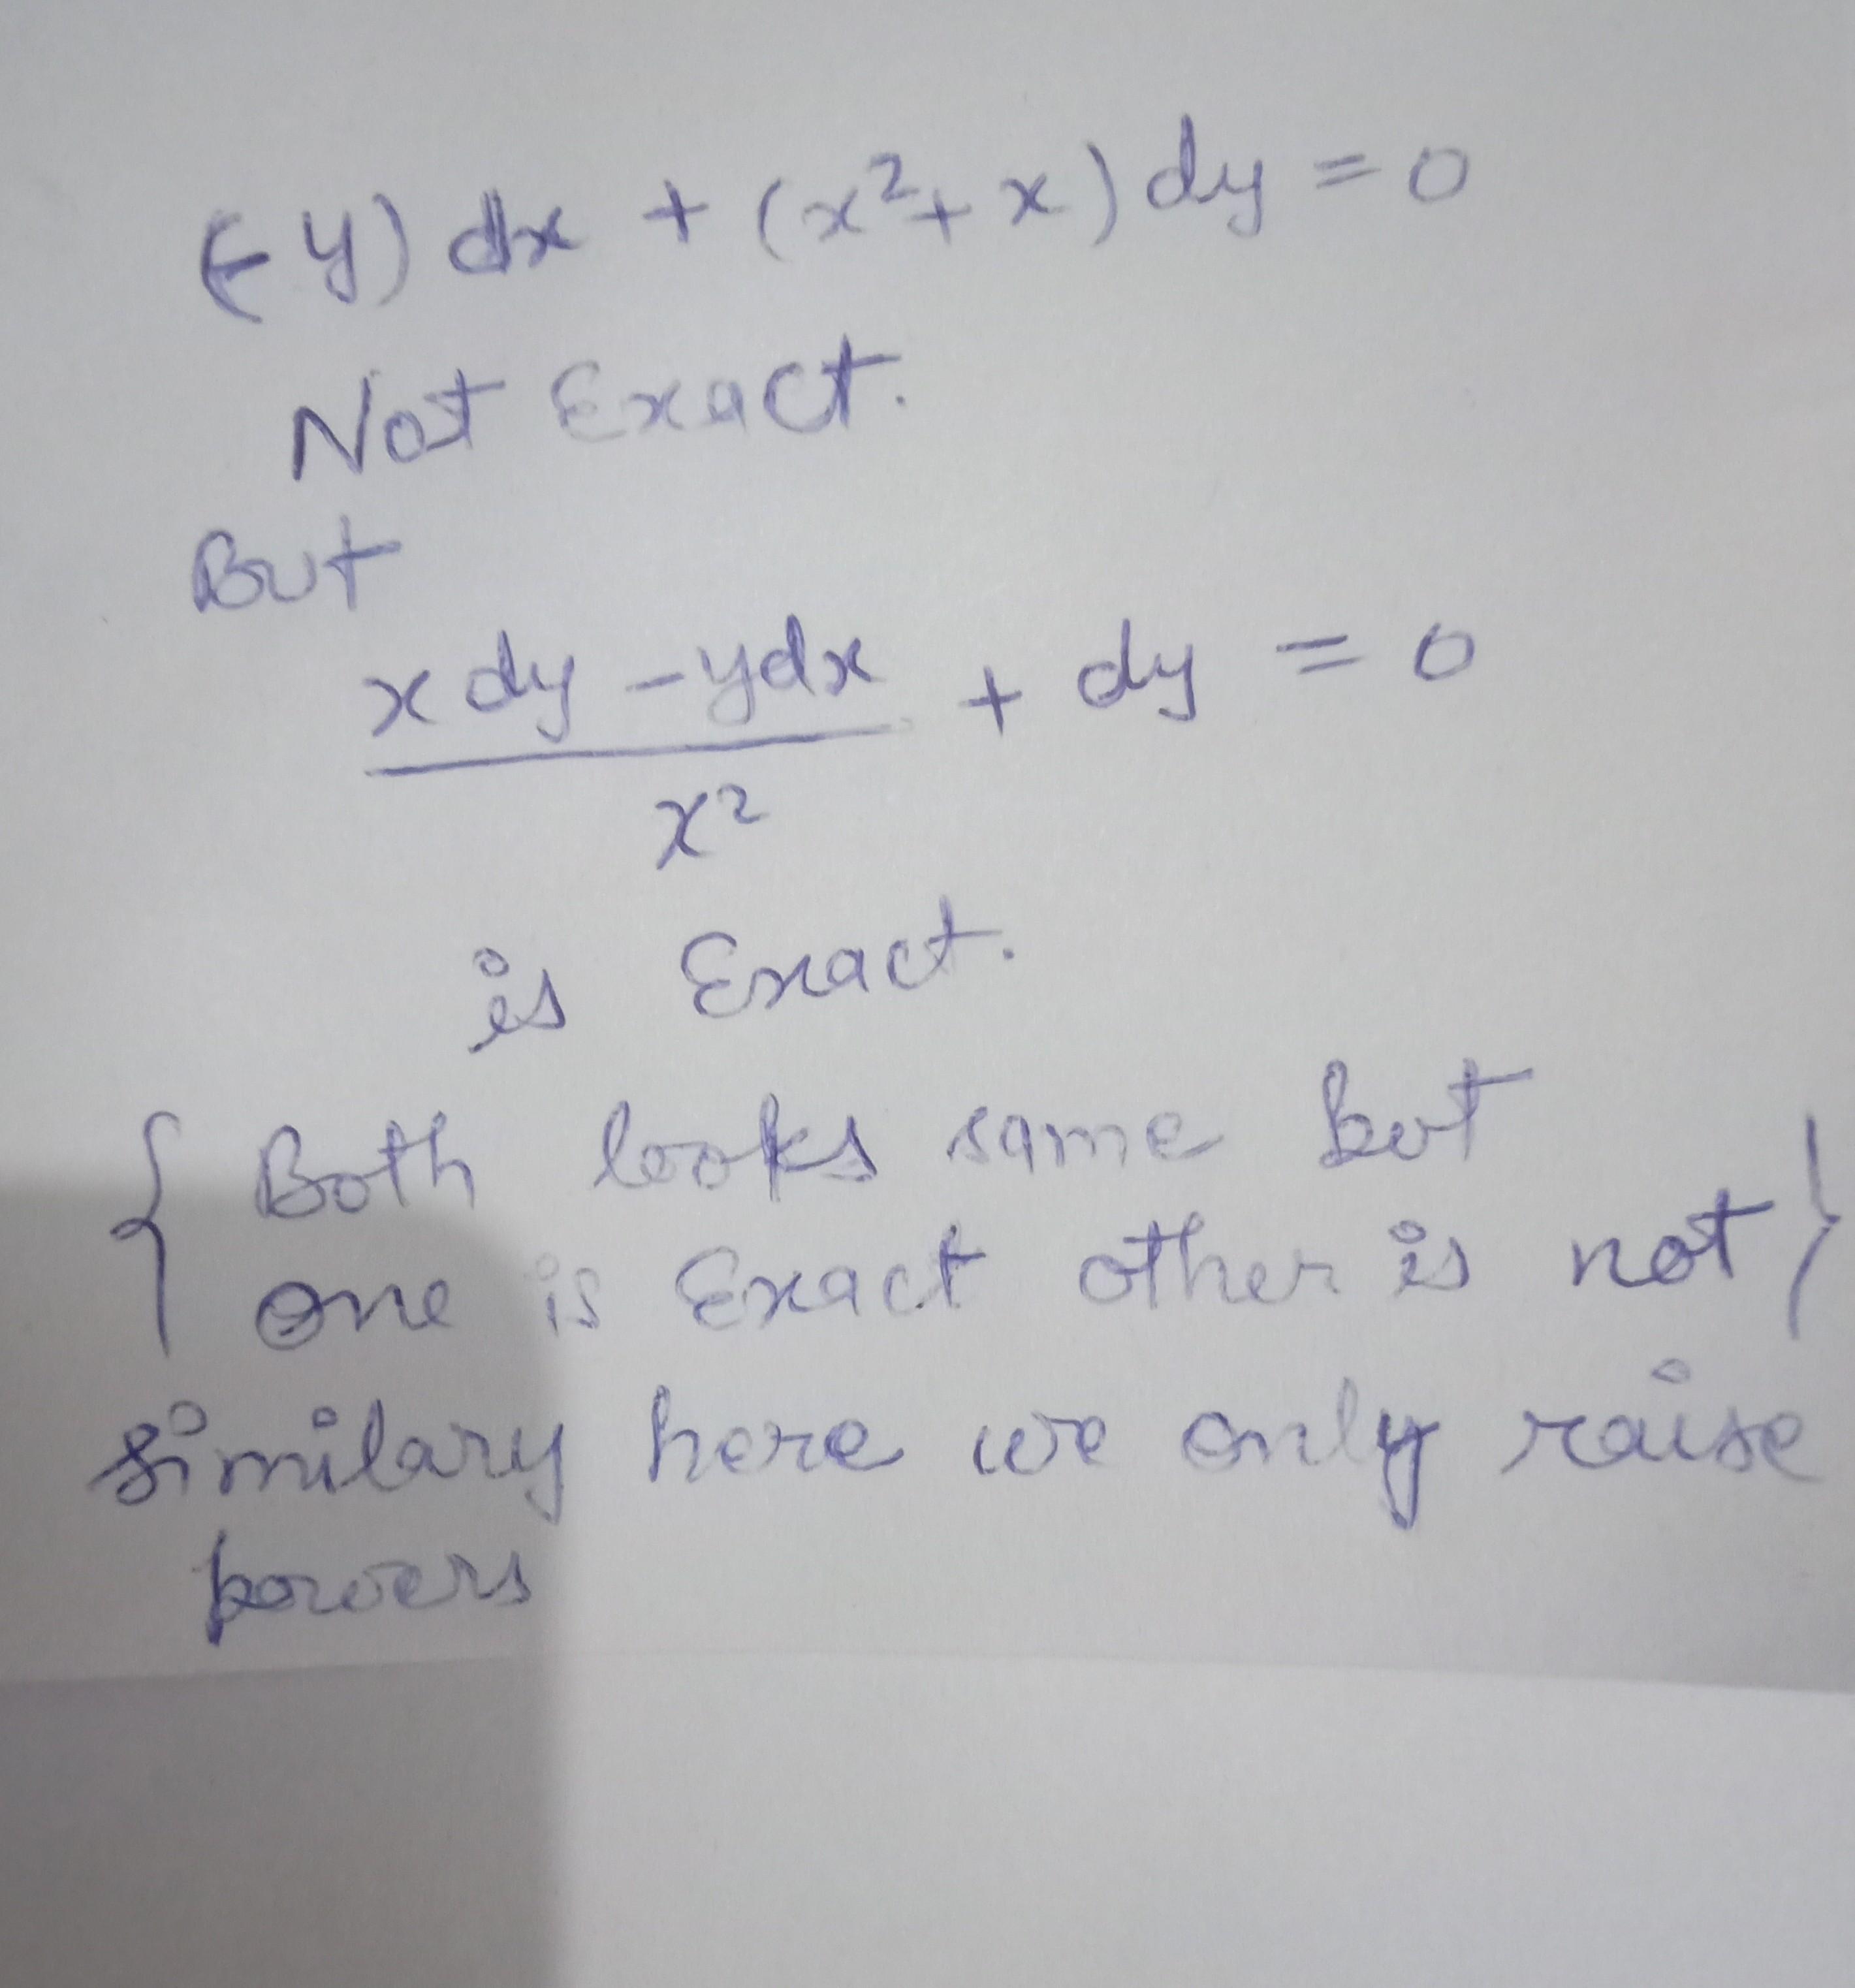 (-y) dx + (x² + x) dy = 0
Not Exact.
But
x dy - y dx + dy = 0
x²
is Exact.
{ Both looks same but
one is Exact other is not }
similary here we only raise
powers